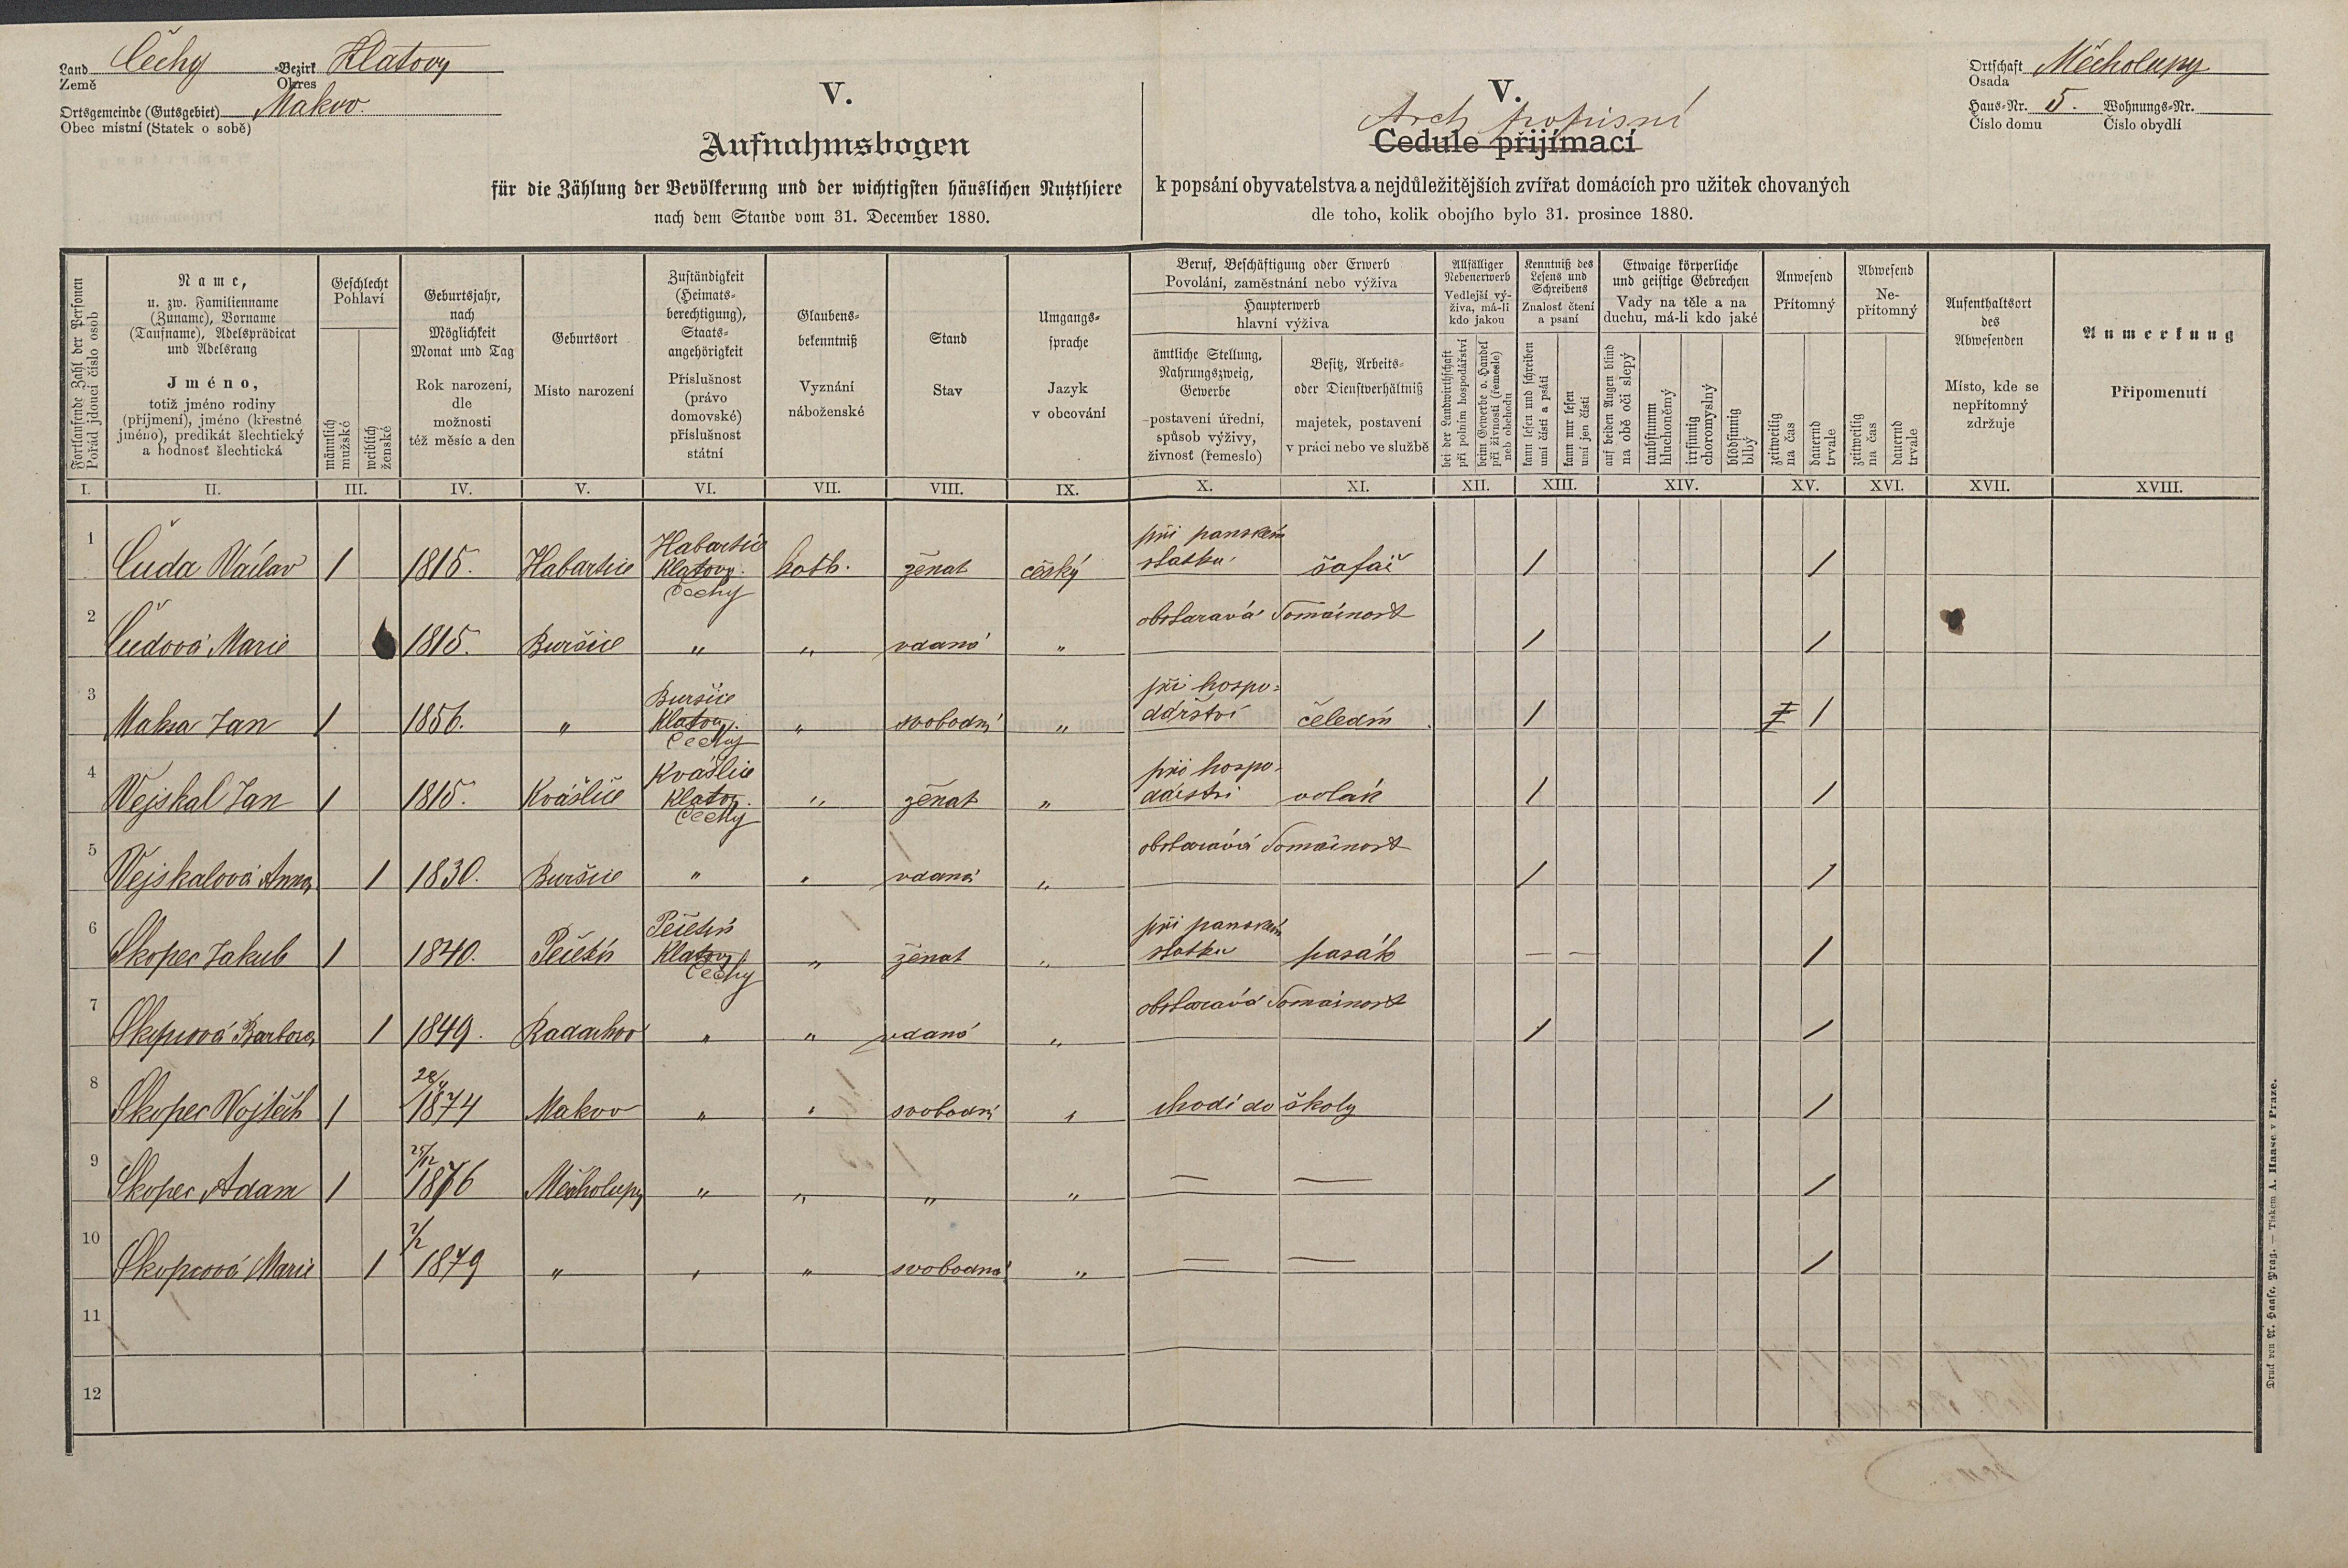 Land Čechy Bezirk Klatovy
Země Okres
Ortsgemeinde (Gutsgebiet) Makov.
Obec místní (Statek o sobě)
V.
Aufnahmsbogen
für die Zählung der Bevölkerung und der wichtigsten häuslichen Nutzthiere
nach dem Stande vom 31. December 1880.
V.
Arch popisní
Cedule přijímací
k popsání obyvatelstva a nejdůležitějších zvířat domácích pro užitek chovaných
dle toho, kolik obojího bylo 31. prosince 1880.
Ortschaft Měcholupy
Osada
Haus-Nr. 5. Wohnungs-Nr.
Číslo domu Číslo obydlí
Fortlaufende Zahl der Personen
Pořád jdoucí číslo osob
Name,
u. zw. Familienname
(Zuname), Vorname
(Taufname), Adelsprädicat
und Adelsrang
Jméno,
totiž jméno rodiny
(příjmení), jméno (křestné
jméno), predikát šlechtický
a hodnosť šlechtická
Geschlecht
Pohlaví
männlich
mužské
weiblich
ženské
Geburtsjahr,
nach
Möglichkeit
Monat und Tag
Rok narození,
dle
možnosti
též měsíc a den
Geburtsort
Místo narození
Zuständigkeit
(Heimats-
berechtigung),
Staats-
angehörigkeit
Příslušnost
(právo
domovské)
příslušnost
státní
Glaubens-
bekenntniß
Vyznání
náboženské
Stand
Stav
Umgangs-
sprache
Jazyk
v obcování
Beruf, Beschäftigung oder Erwerb
Povolání, zaměstnání nebo výživa
Haupterwerb
hlavní výživa
ämtliche Stellung,
Nahrungszweig,
Gewerbe
postavení úřední,
spůsob výživy,
živnosť (řemeslo)
Besitz, Arbeits-
oder Dienstverhältniß
majetek, postavení
v práci nebo ve službě
Allfälliger
Nebenerwerb
Vedlejší vý-
živa, má-li
kdo jakou
bei der Landwirthschaft
při polním hospodářství
beim Gewerbe o. Handel
při živnosti (řemesle)
neb obchodu
Kenntniß des
Lesens und
Schreibens
Znalosť čtení
a psaní
kann lesen und schreiben
umí čísti a psáti
kann nur lesen
umí jen čísti
Etwaige körperliche
und geistige Gebrechen
Vady na těle a na
duchu, má-li kdo jaké
auf beiden Augen blind
na obě oči slepý
taubstumm
hluchoněmý
irrsinnig
choromyslný
blödsinnig
blbý
Anwesend
Přítomný
zeitweilig
na čas
dauernd
trvale
Abwesend
Ne-
přítomný
zeitweilig
na čas
dauernd
trvale
Aufenthaltsort
des
Abwesenden
Místo, kde se
nepřítomný
zdržuje
Anmerkung
Připomenutí
I. II. III. IV. V. VI. VII. VIII. IX. X. XI. XII. XIII. XIV. XV. XVI. XVII. XVIII.
Habartic při panském
1 Čuda Václav 1 1815. Habartice Klatovy. kath. ženat český statku šafář 1 1
Čechy
2 obstaravá domácnost
Čudová Marie 1815. Buršice " " vdaná " 1 1
3 Buršice při hospo-
Maksa Jan 1 1856. " Klatovy. " svobodní " dářství čeledín 1 1
Čechy
4 Kvášlice při hospo-
Wejskal Jan 1 1815. Kvášlice Klatov. " ženat " dářství volák 1 1
Čechy
5 obstarává domácnost
Wejskalová Anna 1 1830. Buršice " " vdaná " 1 1
6 Pečetín při panském
Skopec Jakub 1 1840. Pečetín Klatovy " ženat " statku pasák — — 1
Čechy
7 obstarává domácnost
Skopcová Barbora 1 1849. " " vdaná " 1 1
8 28/4
Skopec Wojtěch 1 1874 Makov " " svobodní " chodí do školy 1
9 25/12
Skopec Adam 1 1876 Měcholupy " " " " — — 1
10 2/2
Skopcová Marie 1 1879 " " " svobodná " — — 1
11
12
Druck von A. Haase, Prag. — Tiskem A. Haase v Praze.